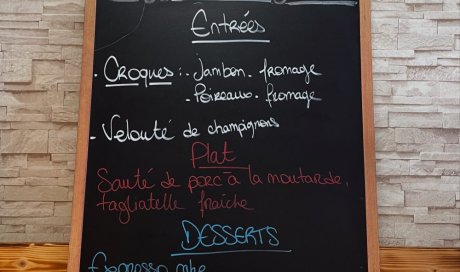 Entrées
- Croques : - Jambon - fromage
- Poireaux - fromage
- Velouté de champignons
Plat
Sauté de porc à la moutarde,
tagliatelle fraîche
DESSERTS